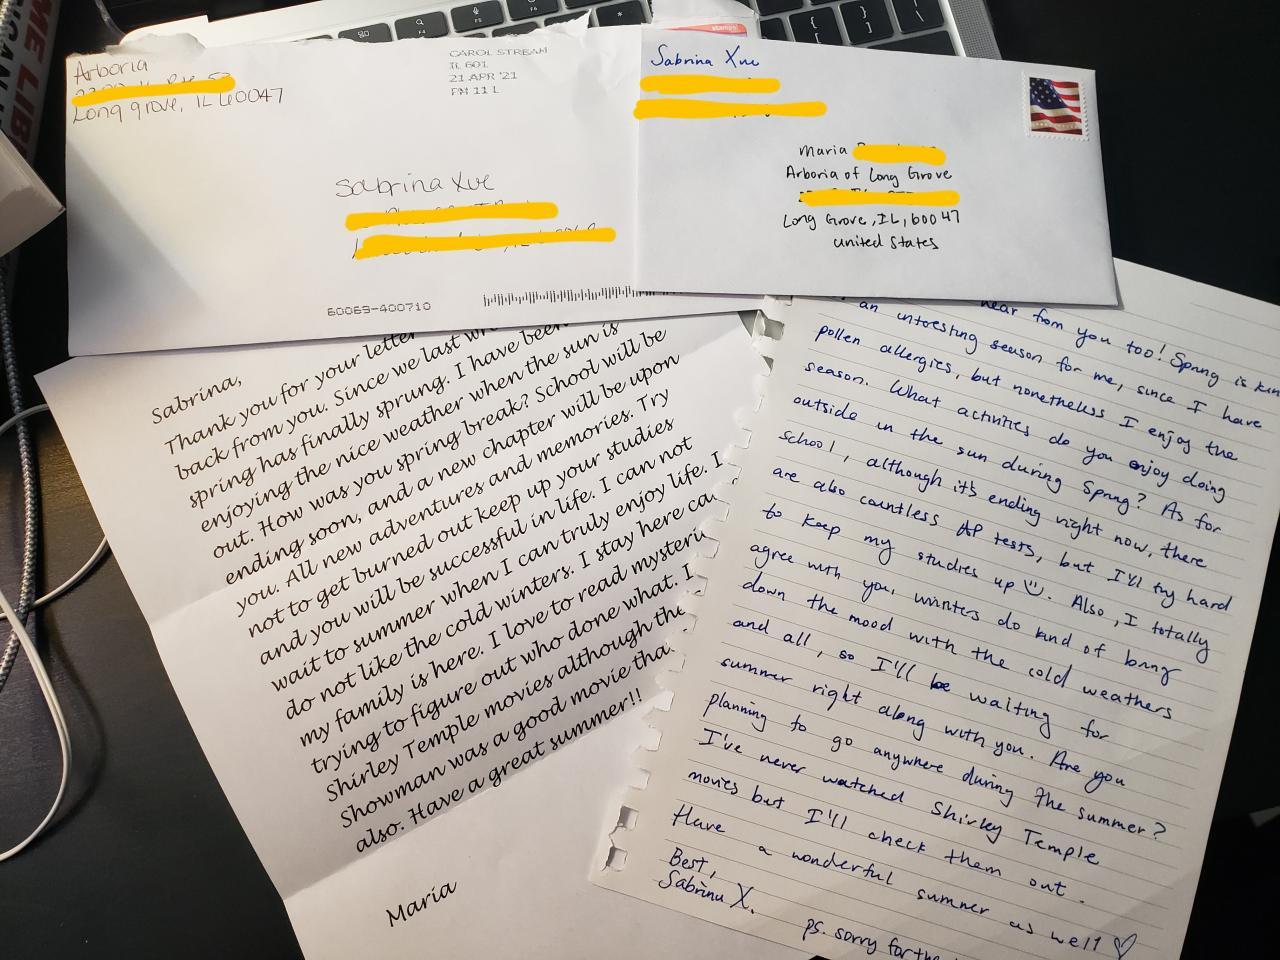 Arboria
Long Grove, IL 60047
CAROL STREAM
IL 601
21 APR '21
PM 11 L
Sabrina Xue
60069-400710
stamps
Sabrina Xue
Maria
Arboria of Long Grove
Long Grove, IL, 60047
United States
Sabrina,
Thank you for your letter
back from you. Since we last
spring has finally sprung. I have been
enjoying the nice weather when the sun is
out. How was you spring break? School will be
ending soon, and a new chapter will be upon
you. All new adventures and memories. Try
not to get burned out keep up your studies
and you will be successful in life. I can not
wait to summer when I can truly enjoy life. I
do not like the cold winters. I stay here
my family is here. I love to read
trying to figure out who done what. I
Shirley Temple movies although
Showman was a good movie
also. Have a great summer!!
Maria
hear from you too! Spring is
an intresting season for me, since I have
pollen allergies, but nonetheless I enjoy the
season. What activities do you enjoy doing
outside in the sun during Spring? As for
school, although it's ending right now, there
are also countless AP tests, but I'll try hard
to keep my studies up ☺. Also, I totally
agree with you, winters do kind of bring
down the mood with the cold weathers
and all, so I'll be waiting for
summer right along with you. Are you
planning to go anywhere during the summer?
I've never watched Shirley Temple
movies but I'll check them out.
Have a wonderful summer as well ♡
Best,
Sabrina X.
ps. sorry for the